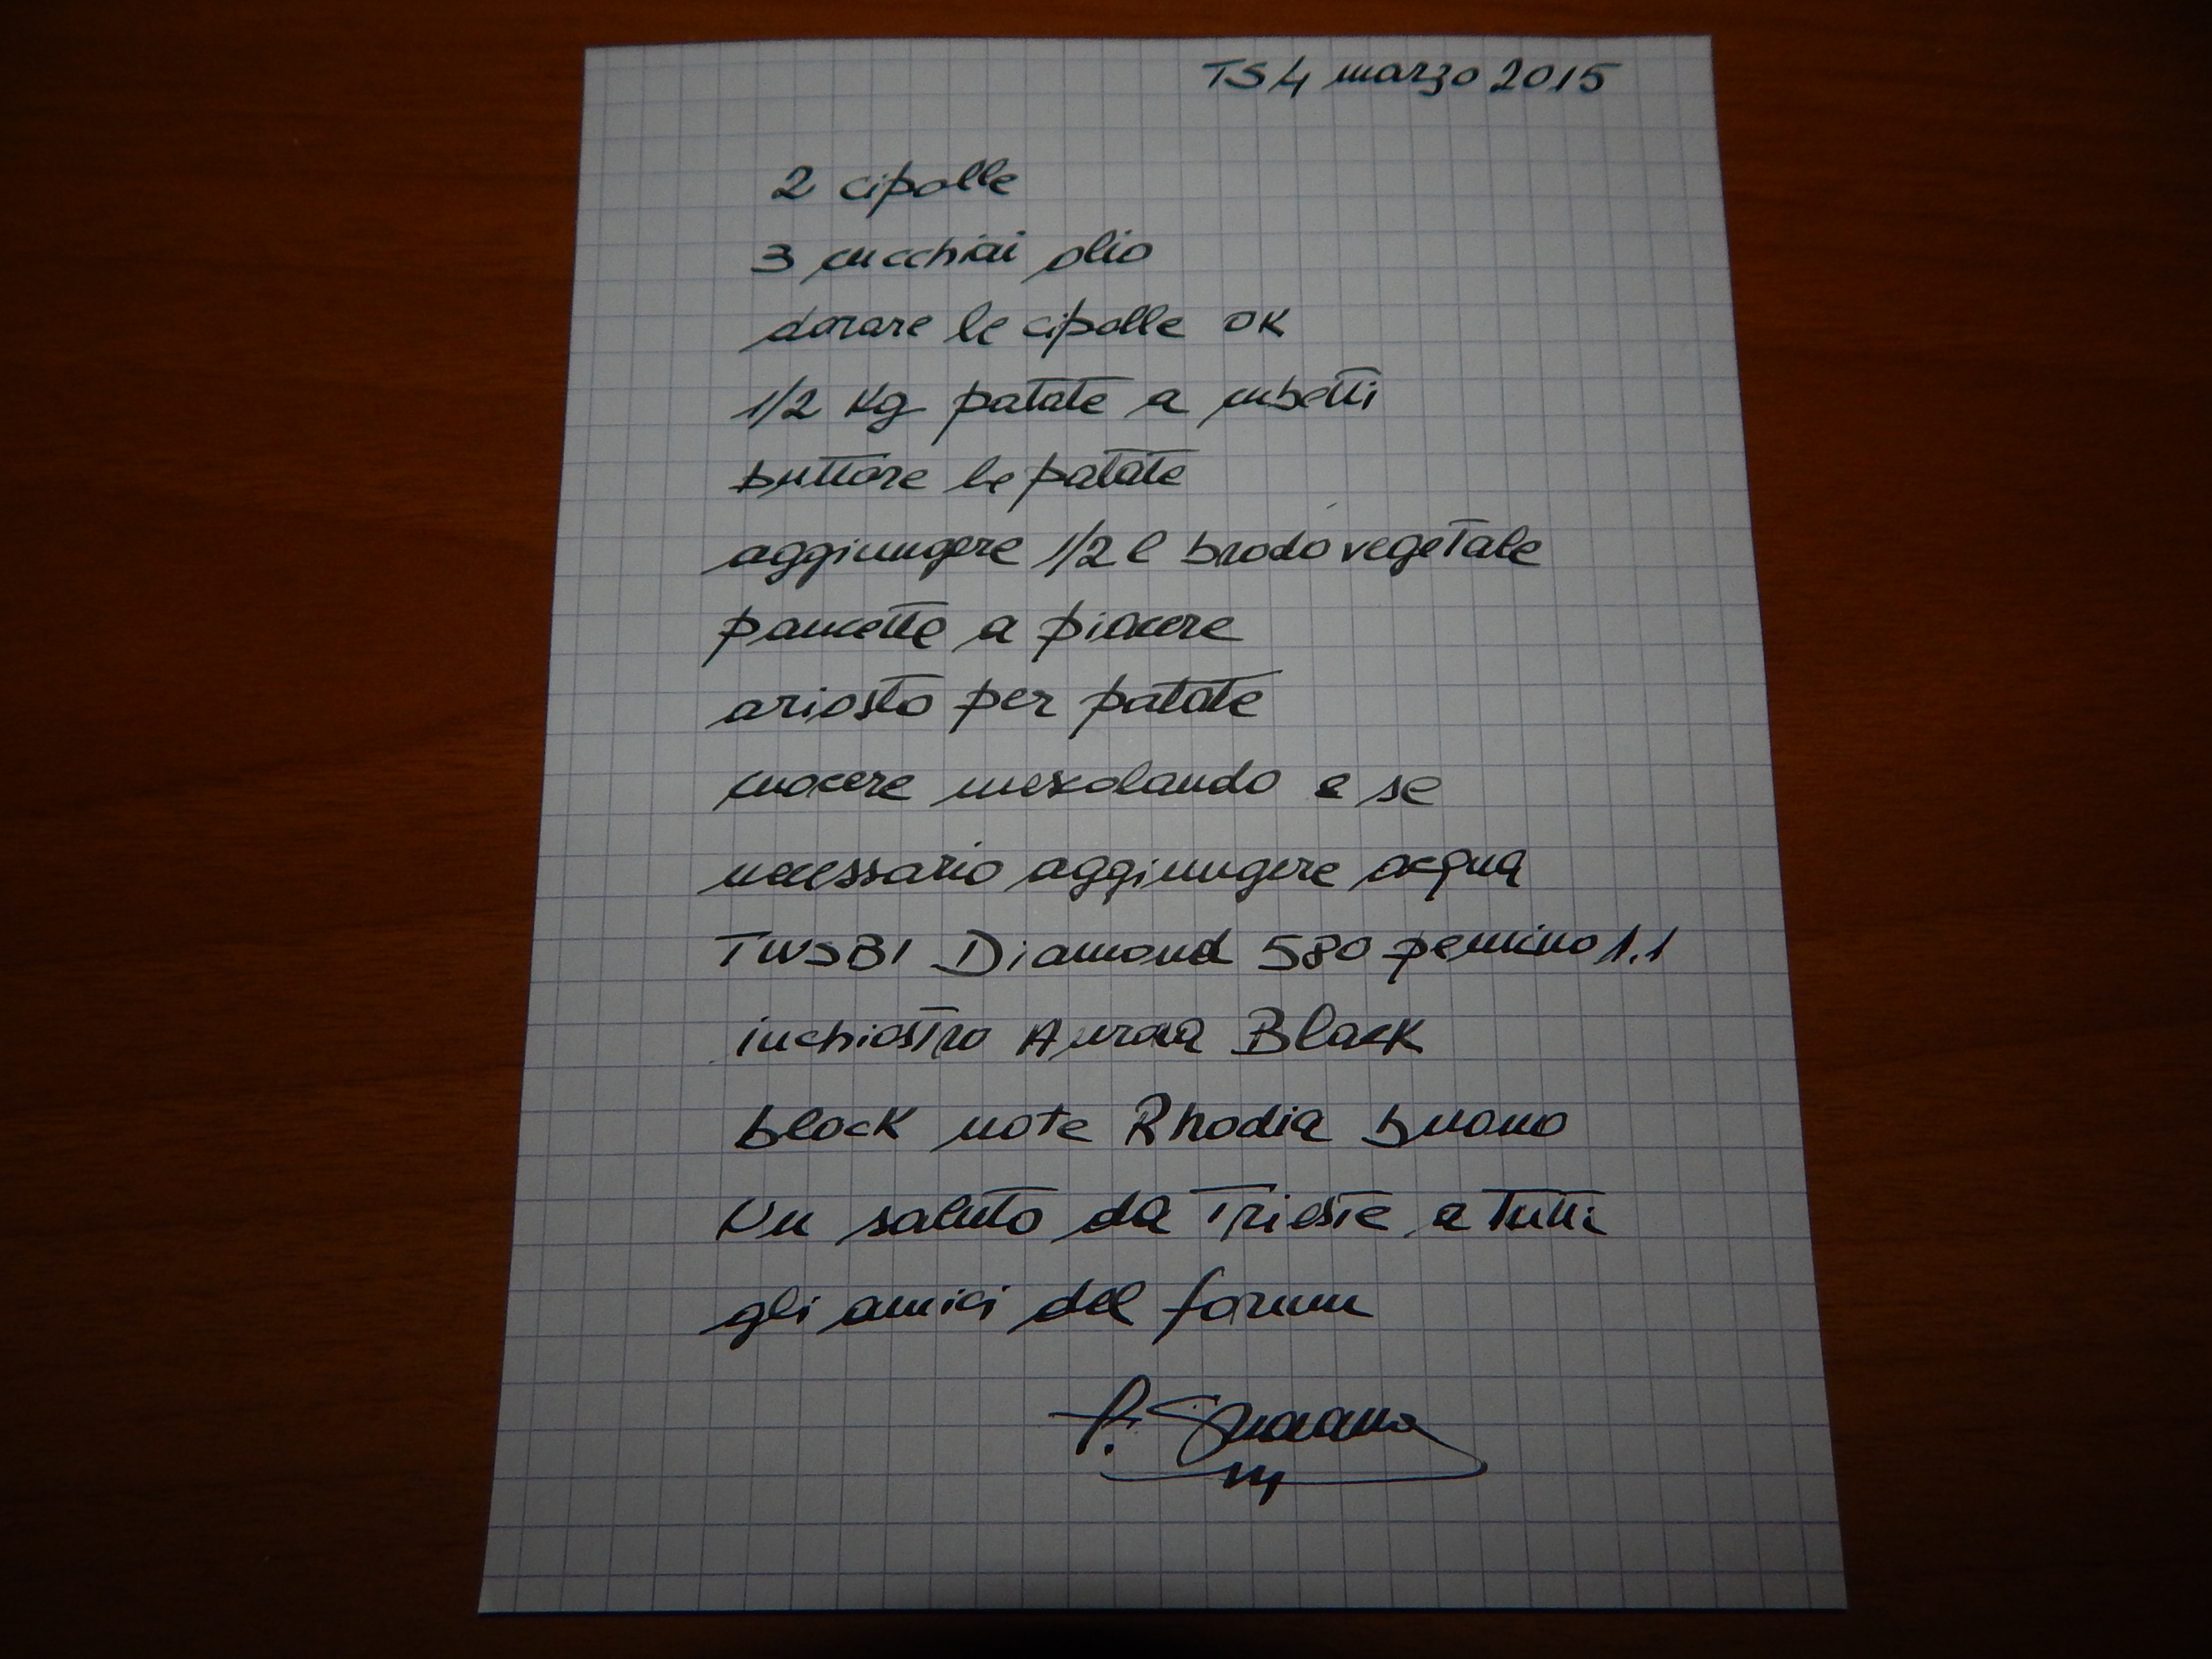 TS 4 marzo 2015
2 cipolle
3 cucchiai olio
dorare le cipolle OK
1/2 Kg patate a cubetti
buttare le patate
aggiungere 1/2 l brodo vegetale
pancetta a piacere
ariosto per patate
cuocere mescolando e se
necessario aggiungere acqua
TWSBI Diamond 580 pennino 1.1
inchiostro Aurora Black
block note Rhodia buono
Un saluto da Trieste a tutti
gli amici del forum
P.